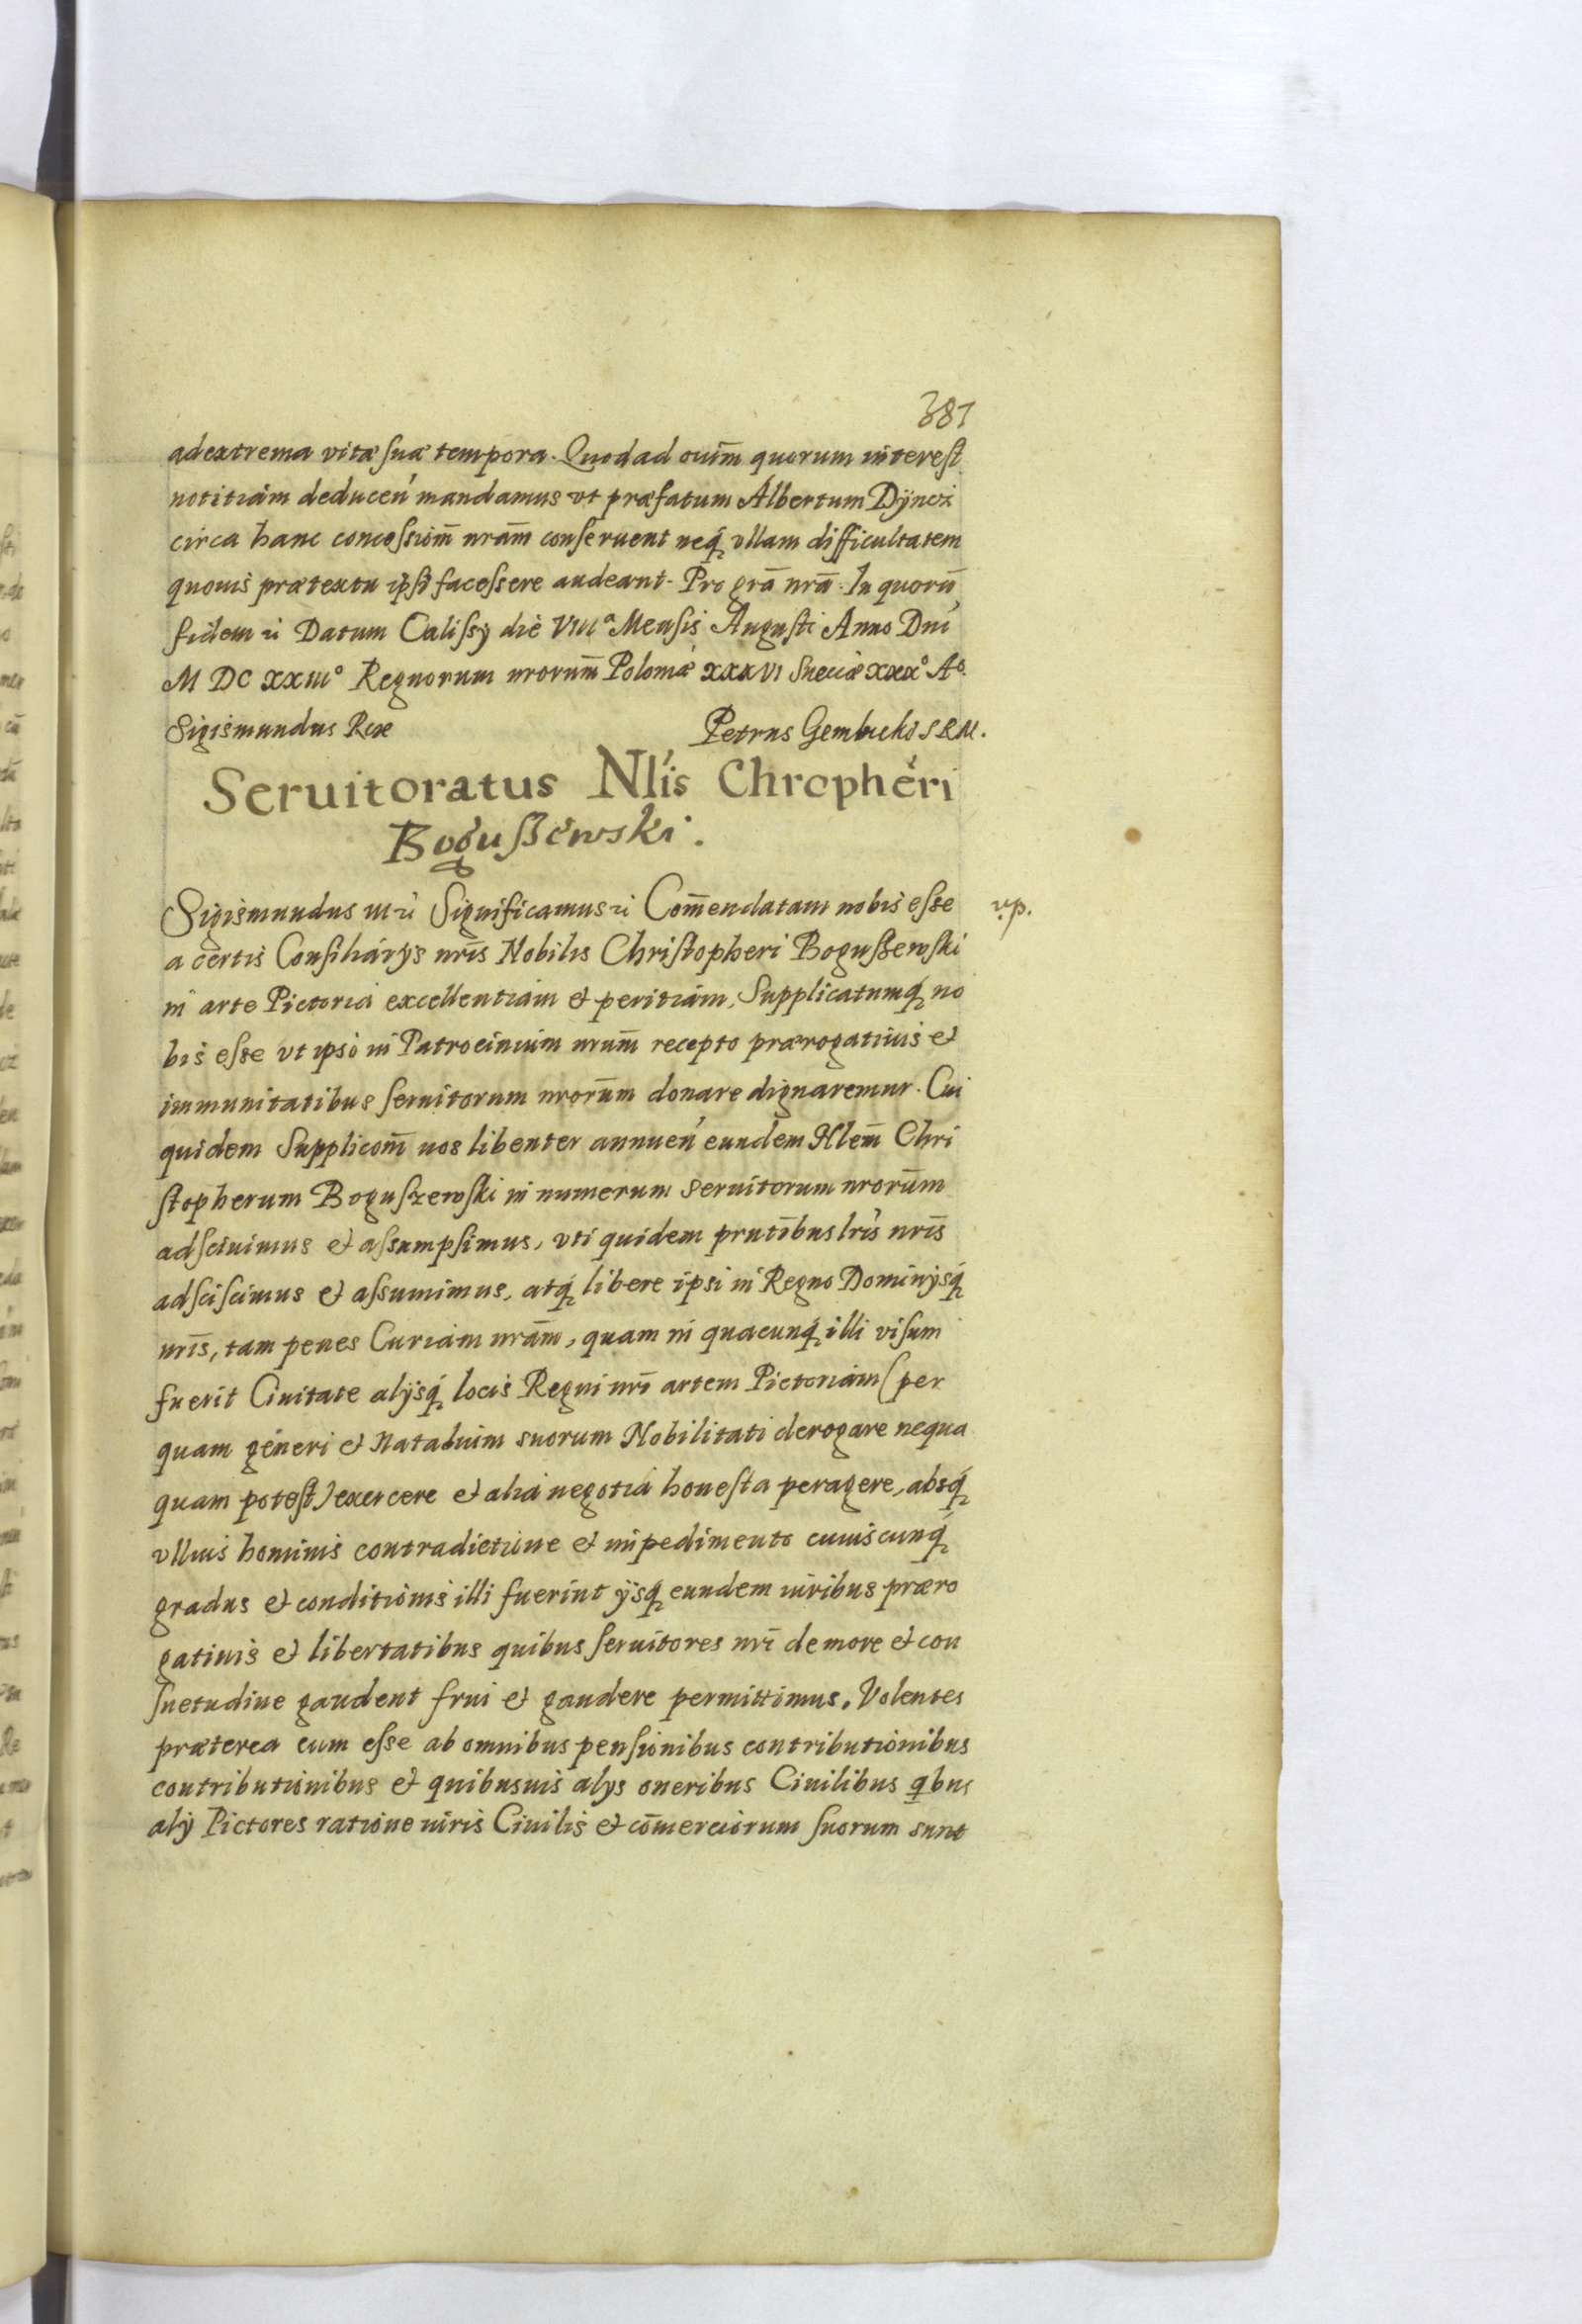 381
ad extrema vitæ suæ tempora. Quod ad oum̄ quorum interest
notitiam deducen' mandamus vt præfatum Albertum Dÿnczi
circa hanc concessiom̄ nram̄ conseruent neq́ vllam difficultatem
quouis prætextu ip̄si facessere audeant. Pro grā nrā. In quorū
fidem ꝛc Datum Calissÿ die VIIIª Mensis Augusti Anno Dni
M DC XXIII° Regnorum nrorum̄ Poloniæ XXXVI Sueciæ XXX° A°.
Sigismundus Rex Petrus Gembicki S R M.
Seruitoratus Nl'is Chrophéri
Bogußewski.
Sigismundus III ꝛc Significamus ꝛc Com̄endatam nobis esse
v.p.
a certis Consiliarÿs nrīs Nobilis Christopheri Bogussewski
in arte Pictoria excellentiam et peritiam, Supplicatumq́ no
bis esse vt ipso in Patrocinium nrum̄ recepto prærogatiuis et
immunitatibus seruitorum nrorum̄ donare dignaremur. Cui
quidem Supplicom̄ nos libenter annuen' eundem Nlem̄ Chri
stopherum Boguszewski in numerum seruitorum nrorum̄
adsciuimus et assumpsimus, vti quidem prntībus lrīs nrīs
adsciscimus et assumimus, atq́ libere ipsi in Regno Dominÿsq́
nrīs, tam penes Curiam nram̄, quam in quacunq́ illi visum
fuerit Ciuitate alÿsq́ locis Regni nrī artem Pictoriam (per
quam generi et Natalium suorum Nobilitati derogare nequa
quam potest) exercere et alia negotia honesta peragere, absq́
vllius hominis contradictione et impedimento cuiuscunq́
gradus et conditionis illi fuerint ÿsq́ eundem iuribus præro
gatiuis et libertatibus quibus seruitores nrī de more et con
suetudine gaudent frui et gaudere permittimus. Volentes
præterea eum esse ab omnibus pensionibus contributionibus
contributionibus et quibusuis alys oneribus Ciuilibus qbus
alÿ Pictores ratione iuris Ciuilis et com̄erciorum suorum sunt